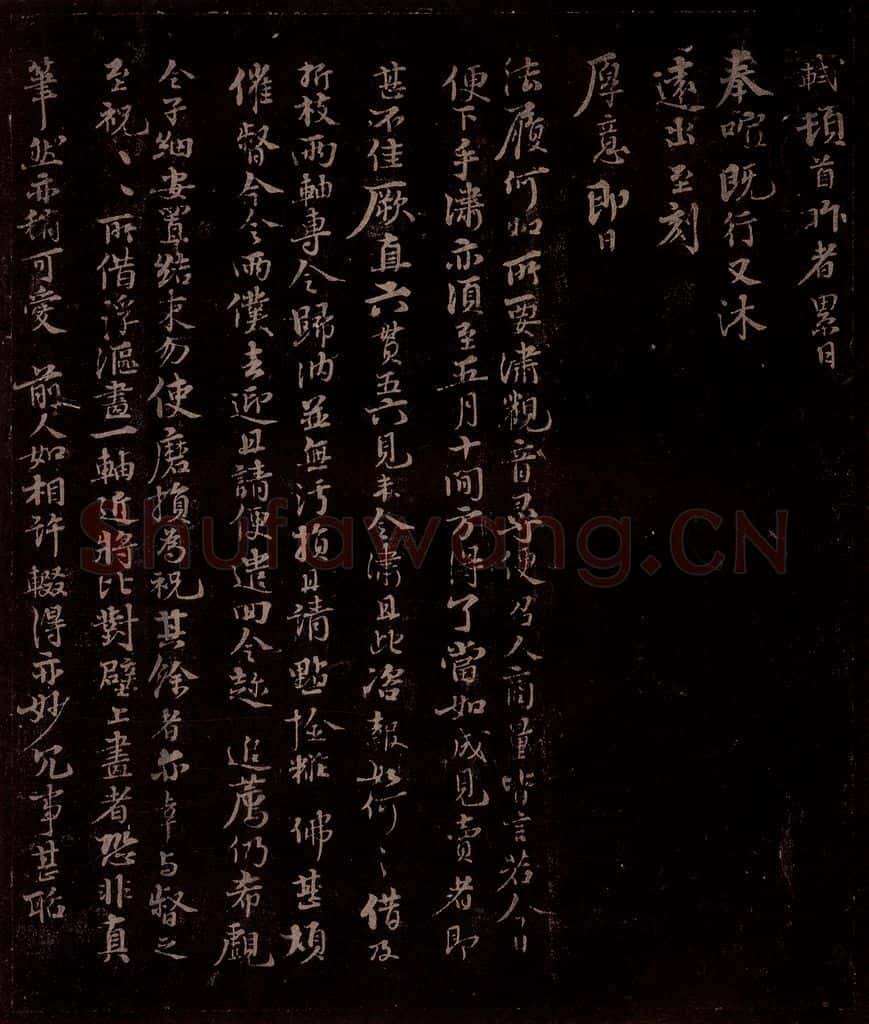 軾頓首昨者累日
奉喧既行又沐
遠出至刻
厚意即日
法履何如所要潚觀音尋便召人商量皆言若今日
便下手潚亦須至五月十間方得了當如成見賣者即
甚不佳厥直六貫五六見未令潚且此咨報如何〻借及
折枝兩軸專令歸納並無污損且請點檢 佛甚煩
催督今令兩僕去迎且請便遣回令 追薦仍希觀
令子細安置結束勿使磨損為祝其餘者亦幸与督之
至祝〻〻所借浮漚畫一軸近將比對壁上畫者恐非真
筆然亦稍可愛前人如相許輟得亦妙冗事甚聒
Shufawang.CN